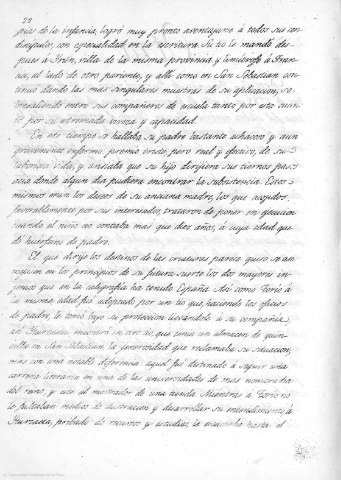 20
pués de la infancia, logró muy pronto aventajar á todos sus con
discípulos, con especialidad en la escritura. Su tio le mandó des
pues á Irún, villa de la misma provincia y limítrofe á Fran
cia, al lado de otro pariente, y allí como en San Sebastian con
tinuó dando las mas singulares muestras de su aplicacion, so
bresaliendo entre sus compañeros de escuela tanto por su
como por su estremada viveza y capacidad.
En este tiempo se hallaba su padre bastante achacoso y aun
próximamente enfermo
laboriosa vida, y ansiaba que su hijo dirijiera sus tiernos pasos
hacia donde algun dia pudiera encontrar la subsistencia. Estos
mismos eran los deseos de su anciana madre, los que acojidos
favorablemente por sus interesados, trataron de poner en ejecucion
cuando el niño no contaba mas que diez años, á cuya edad que
dó huerfano de padre.
El que dirije los destinos de las criaturas parece quiso
en los principios de su futura suerte los dos mayores in
jenios que en la caligrafía ha tenido España. Así como Torío á
la misma edad fué adoptado por un tio que, haciendo los oficios
de padre, le tomó bajo su proteccion llevándole á su compañía,
así Iturzaeta encontró en otro tio, que tenia un almacen de quin
calla en San Sebastian la jenerosidad que reclamaba su situacion,
mas con una notable diferencia: aquel fué destinado á seguir una
carrera literaria en una de las universidades de mas nombradía
del reino, y este al mostrador de una tienda. Mientras á Torío no
le faltaban medios de ilustracion y desarrollar su entendimiento, á
Iturzaeta, privado de recursos y estudios, la